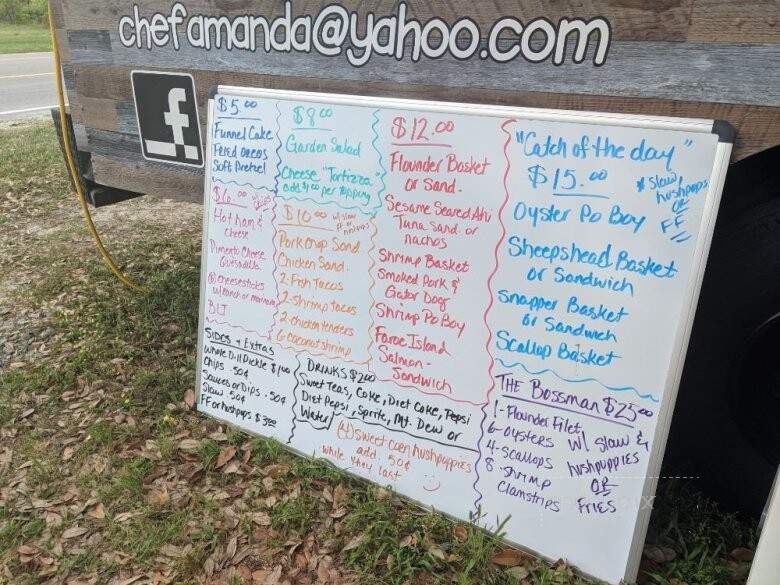 chefamanda@yahoo.com
f
$5.00
Funnel Cake
Fried Oreos
Soft Pretzel
$6.00
Hot ham &
cheese
Pimento Cheese
Quesadilla
cheesesticks
w/ ranch or marinara
BLT
$8.00
Garden Salad
Cheese "Tortizza"
add $1.00 per topping
$10.00 w/ slaw
FF or
hushpups
Pork Chop Sand.
Chicken Sand.
2-Fish Tacos
2-Shrimp tacos
2-chicken tenders
6-coconut shrimp
$12.00
Flounder Basket
or Sand.
Sesame Seared Ahi
Tuna Sand. or
nachos
Shrimp Basket
Smoked Pork &
Gator Dog
Shrimp Po Boy
Faroe Island
Salmon
Sandwich
"Catch of the day"
$15.00
* Slaw,
hushpups
OR
FF
Oyster Po Boy
Sheepshead Basket
or Sandwich
Snapper Basket
or Sandwich
Scallop Basket
Sides + Extras
Whole Dill Pickle $1.00
Chips .50¢
Sauces or Dips .50¢
Slaw .50¢
FF or hushpups $3.00
DRINKS $2.00
Sweet Teas, Coke, Diet Coke, Pepsi
Diet Pepsi, Sprite, Mt. Dew or
Water
(4) Sweet corn hushpuppies
add .50¢
while they last
THE Bossman $25.00
1-Flounder Filet
6-oysters w/ slaw &
4-scallops hushpuppies
8-shrimp OR
Clamstrips FRIES